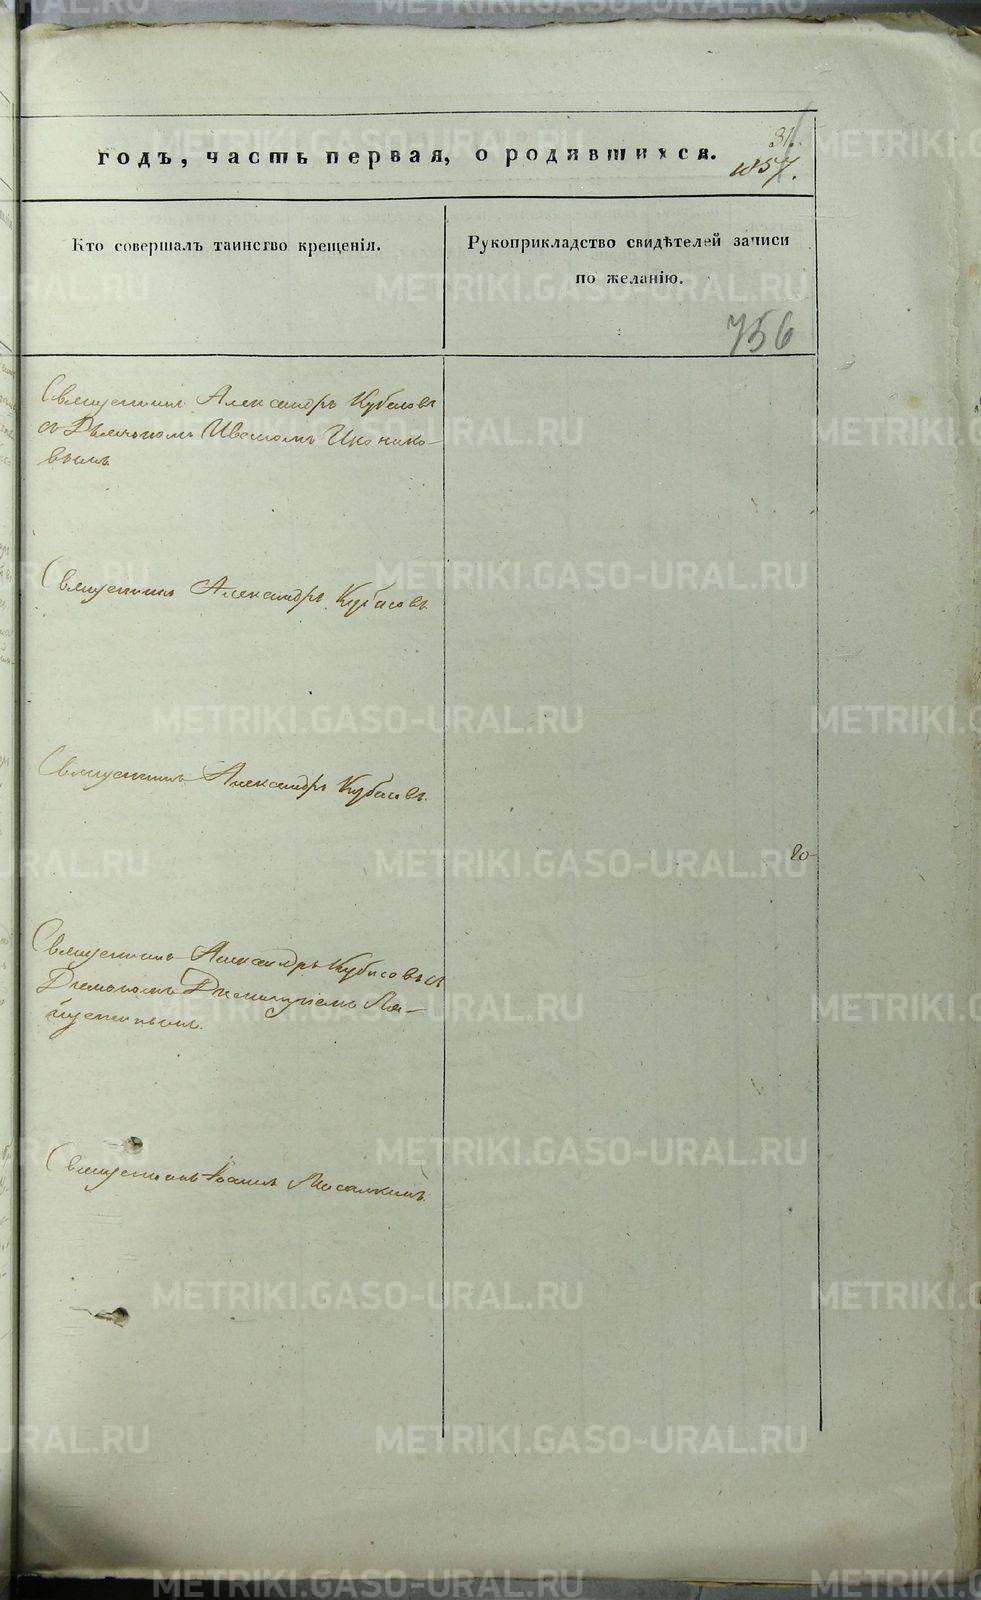 годъ, часть первая, о родившихся.
31.
1857.
Кто совершалъ таинство крещенія.
Рукоприкладство свидѣтелей записи
по желанію.
756
Священникъ Александръ Кубасовъ
съ Дьячкомъ Иваномъ Иконико-
вымъ
Священникъ Александръ Кубасовъ
Священникъ Александръ Кубасовъ.
20
Священникъ Александръ Кубасовъ съ
Священникъ Іоаннъ
METRIKI.GASO-URAL.RU